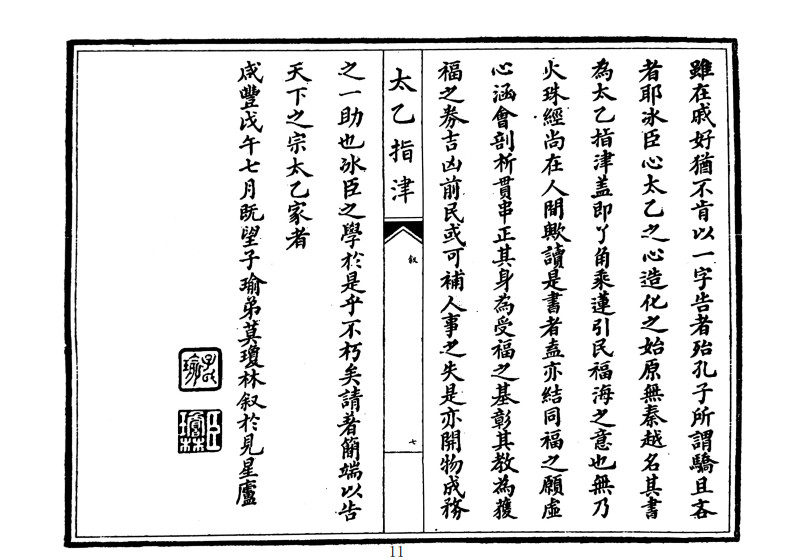 雖在戚好猶不肯以一字告者殆孔子所謂驕且吝
者耶冰臣心太乙之心造化之始原無秦越名其書
為太乙指津蓋即丫角乘蓮引民福海之意也無乃
火珠經尚在人間歟讀是書者盍亦結同福之願虛
心涵會剖析貫串正其身為受福之基彰其教為獲
福之券吉凶前民或可補人事之失是亦開物成務
太乙指津
叙
七
之一助也冰臣之學於是乎不朽矣請著簡端以告
天下之宗太乙家者
咸豐戊午七月既望子瑜弟莫瓊林叙於見星廬
子瑜
臣瓊林
11